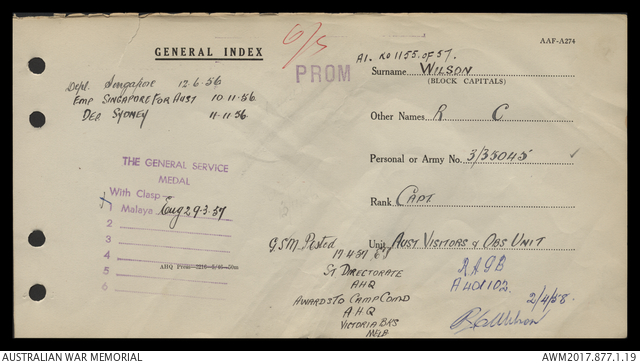 GENERAL INDEX
AAF-A274
6/5
PROM
A1. R01155. OF 57.
Surname WILSON
(BLOCK CAPITALS)
Other Names R C
Personal or Army No. 3/35045
Rank CAPT
Unit AUST VISITORS & OBS UNIT
Depl. Singapore 12-6-56
EMP SINGAPORE FOR AUST 10-11-56
DEB SYDNEY 11-11-56
THE GENERAL SERVICE
MEDAL
With Clasp
1 Malaya Eng 29-3-57
2
3
4
5
6
AHQ Press
GSM Posted
17.4.57
ST DIRECTORATE
AHQ
AWARDS TO CAMP COMD
AHQ
VICTORIA BKS
MELB
R.A.G.B
A401102
2/4/58.
RCWilson
AUSTRALIAN WAR MEMORIAL
AWM2017.877.1.19